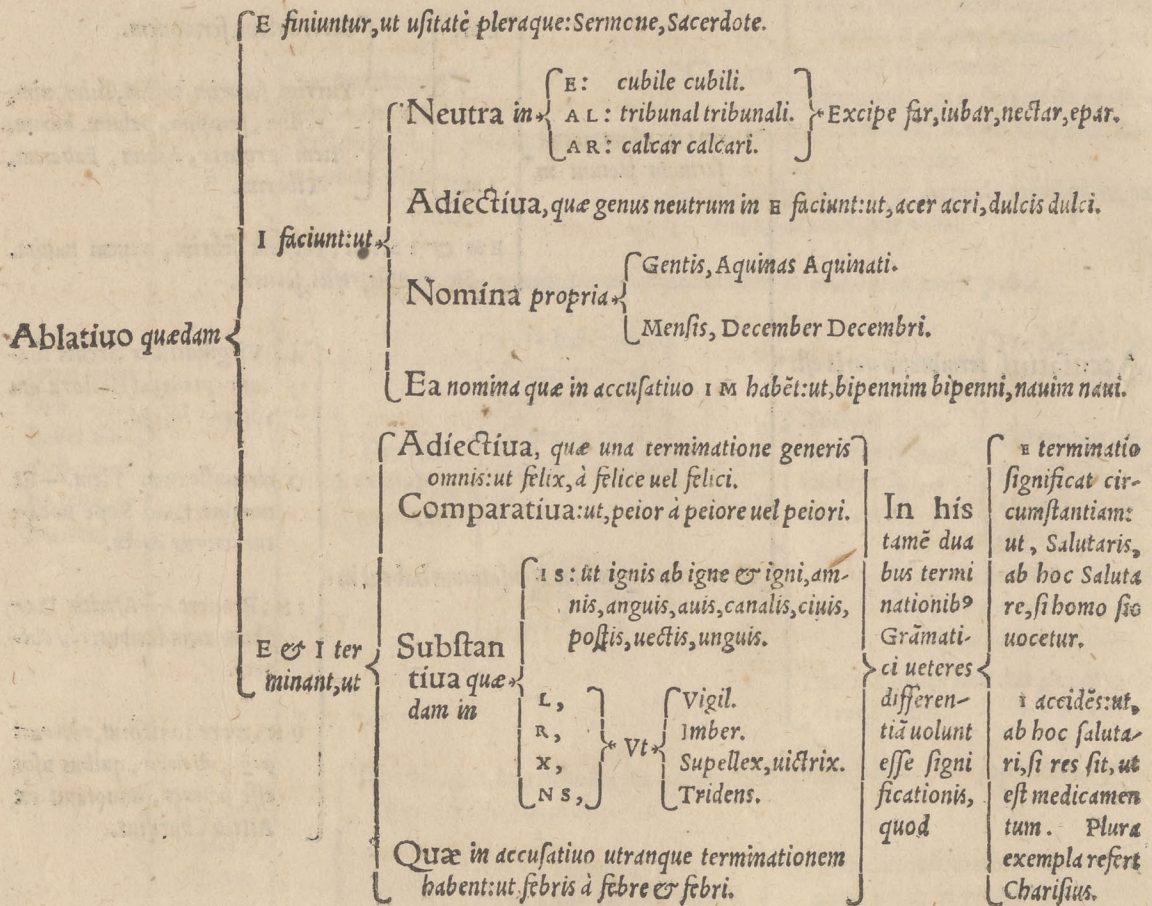 E finiuntur,ut uſitatè pleraque:Sermone,Sacerdote.
Neutra in
E: cubile cubili.
AL: tribunal tribunali.
AR: calcar calcari.
Excipe far,iubar,nectar,epar.
Adiectiua, quæ genus neutrum in E faciunt:ut, acer acri, dulcis dulci.
I faciunt:ut
Gentis, Aquinas Aquinati.
Nomina propria
Menſis, December Decembri.
Ablatiuo quædam
Ea nomina quæ in accuſatiuo IM habẽt:ut,bipennim bipenni,nauim naui.
Adiectiua, quæ una terminatione generis
omnis:ut felix,à felice uel felici.
Comparatiua:ut,peior à peiore uel peiori.
E & I ter
minant,ut
Subſtan
tiua quæ
dam in
IS: ut ignis ab igne & igni,am-
nis,anguis,auis,canalis,ciuis,
poſtis,uectis,unguis.
L,
R,
X,
NS,
Vt
Vigil.
Imber.
Supellex,uictrix.
Tridens.
Quæ in accuſatiuo utranque terminationem
habent:ut febris à febre & febri.
In his
tamẽ dua
bus termi
nationibꝰ
Grãmati-
ci ueteres
differen-
tiã uolunt
eſſe ſigni
ficationis,
quod
E terminatio
ſignificat cir-
cumſtantiam:
ut, Salutaris,
ab hoc Saluta
re,ſi homo ſic
uocetur.
I accidẽs:ut,
ab hoc ſaluta-
ri,ſi res ſit,ut
eſt medicamen
tum. Plura
exempla refert
Chariſius.